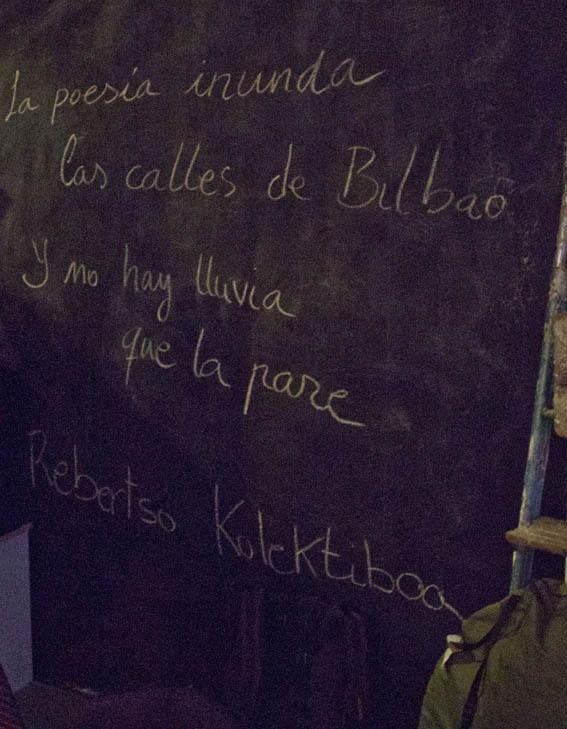 La poesía inunda
las calles de Bilbao
y no hay lluvia
que la pare
Rebertso Kolektiboa